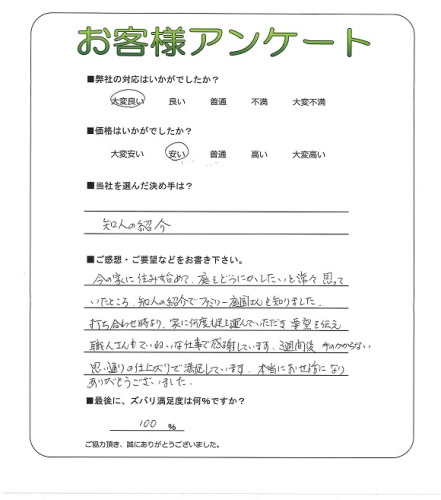 お客様アンケート
■弊社の対応はいかがでしたか？
大変良い 良い 普通 不満 大変不満
■価格はいかがでしたか？
大変安い 安い 普通 高い 大変高い
■当社を選んだ決め手は？
知人の紹介
■ご感想・ご要望などをお書き下さい。
今の家に住み始めて、庭をどうにかしたいと常々思って
いたところ、知人の紹介でファミリー庭園さんを知りました。
打ち合わせ時より、家に何度も足を運んでいただき要望を伝え
職人さんもていねいな仕事で感謝しています。3週間後 手のかからない
思い通りの仕上がりで満足しています。本当にお世話になり
ありがとうございました。
■最後に、ズバリ満足度は何%ですか？
100 %
ご協力頂き、誠にありがとうございました。